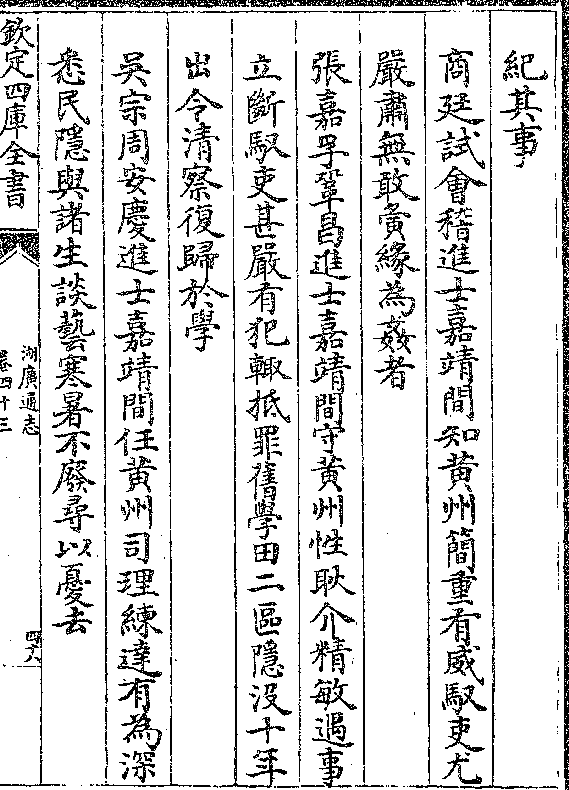 紀其事
商廷試會稽進士嘉靖間知黄州簡重有威馭吏尤
嚴肅無敢夤緣為姦者
張嘉孚鞏昌進士嘉靖間守黄州性耿介精敏遇事
立斷馭吏甚嚴有犯輙抵罪舊學田二區隱没十年
出令清察復歸於學
吴宗周安慶進士嘉靖間任黄州司理練達有為深
悉民隱與諸生談藝寒暑不廢尋以憂去
欽定四庫全書
湖廣通志
卷四十三